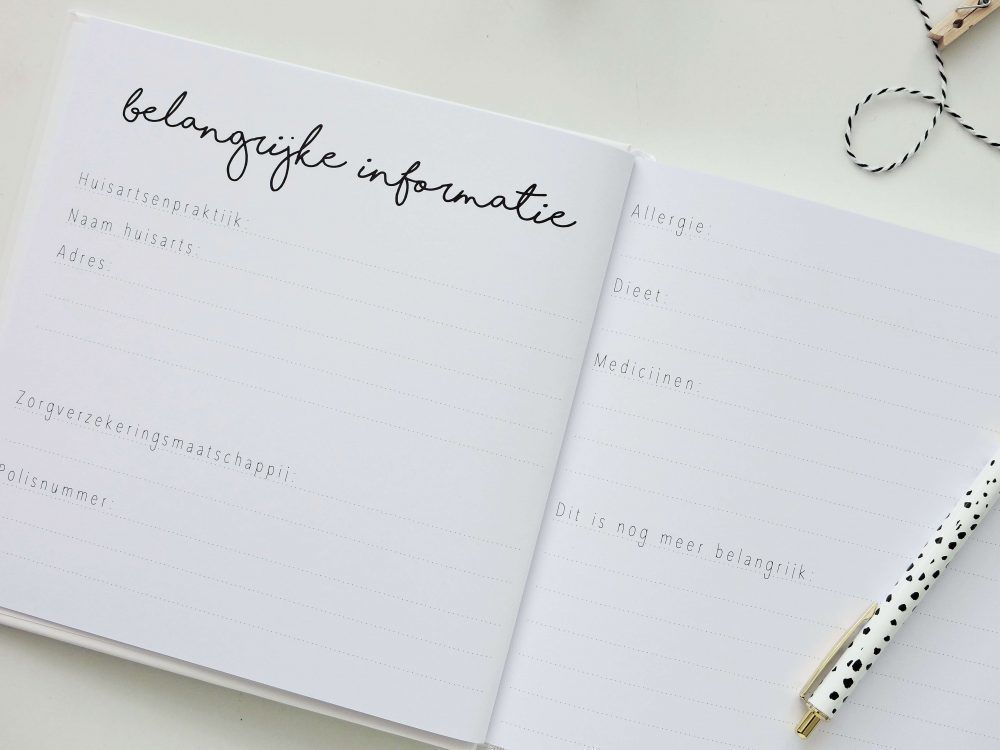 belangrijke informatie
Huisartsenpraktijk:
Naam huisarts:
Adres:
Zorgverzekeringsmaatschappij:
Polisnummer:
Allergie:
Dieet:
Medicijnen:
Dit is nog meer belangrijk: